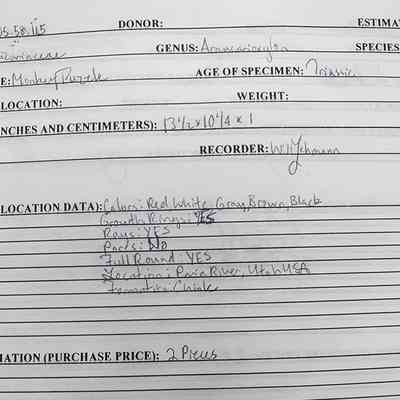 05-58.115 DONOR: ESTIMA
GENUS: Araucarioxylon SPECIES
E: Monkey Puzzle AGE OF SPECIMEN: Triassic
LOCATION: WEIGHT:
NCHES AND CENTIMETERS): 13 1/2 x 10 1/4 x 1
RECORDER:
LOCATION DATA): Colors: Red White, Gray, Brown, Black
Growth Rings: YES
Rays: YES
Pores: NO
Full Round: YES
Location: Paria River, Utah USA
Formation: Chinle
MATION (PURCHASE PRICE): 2 Pieces